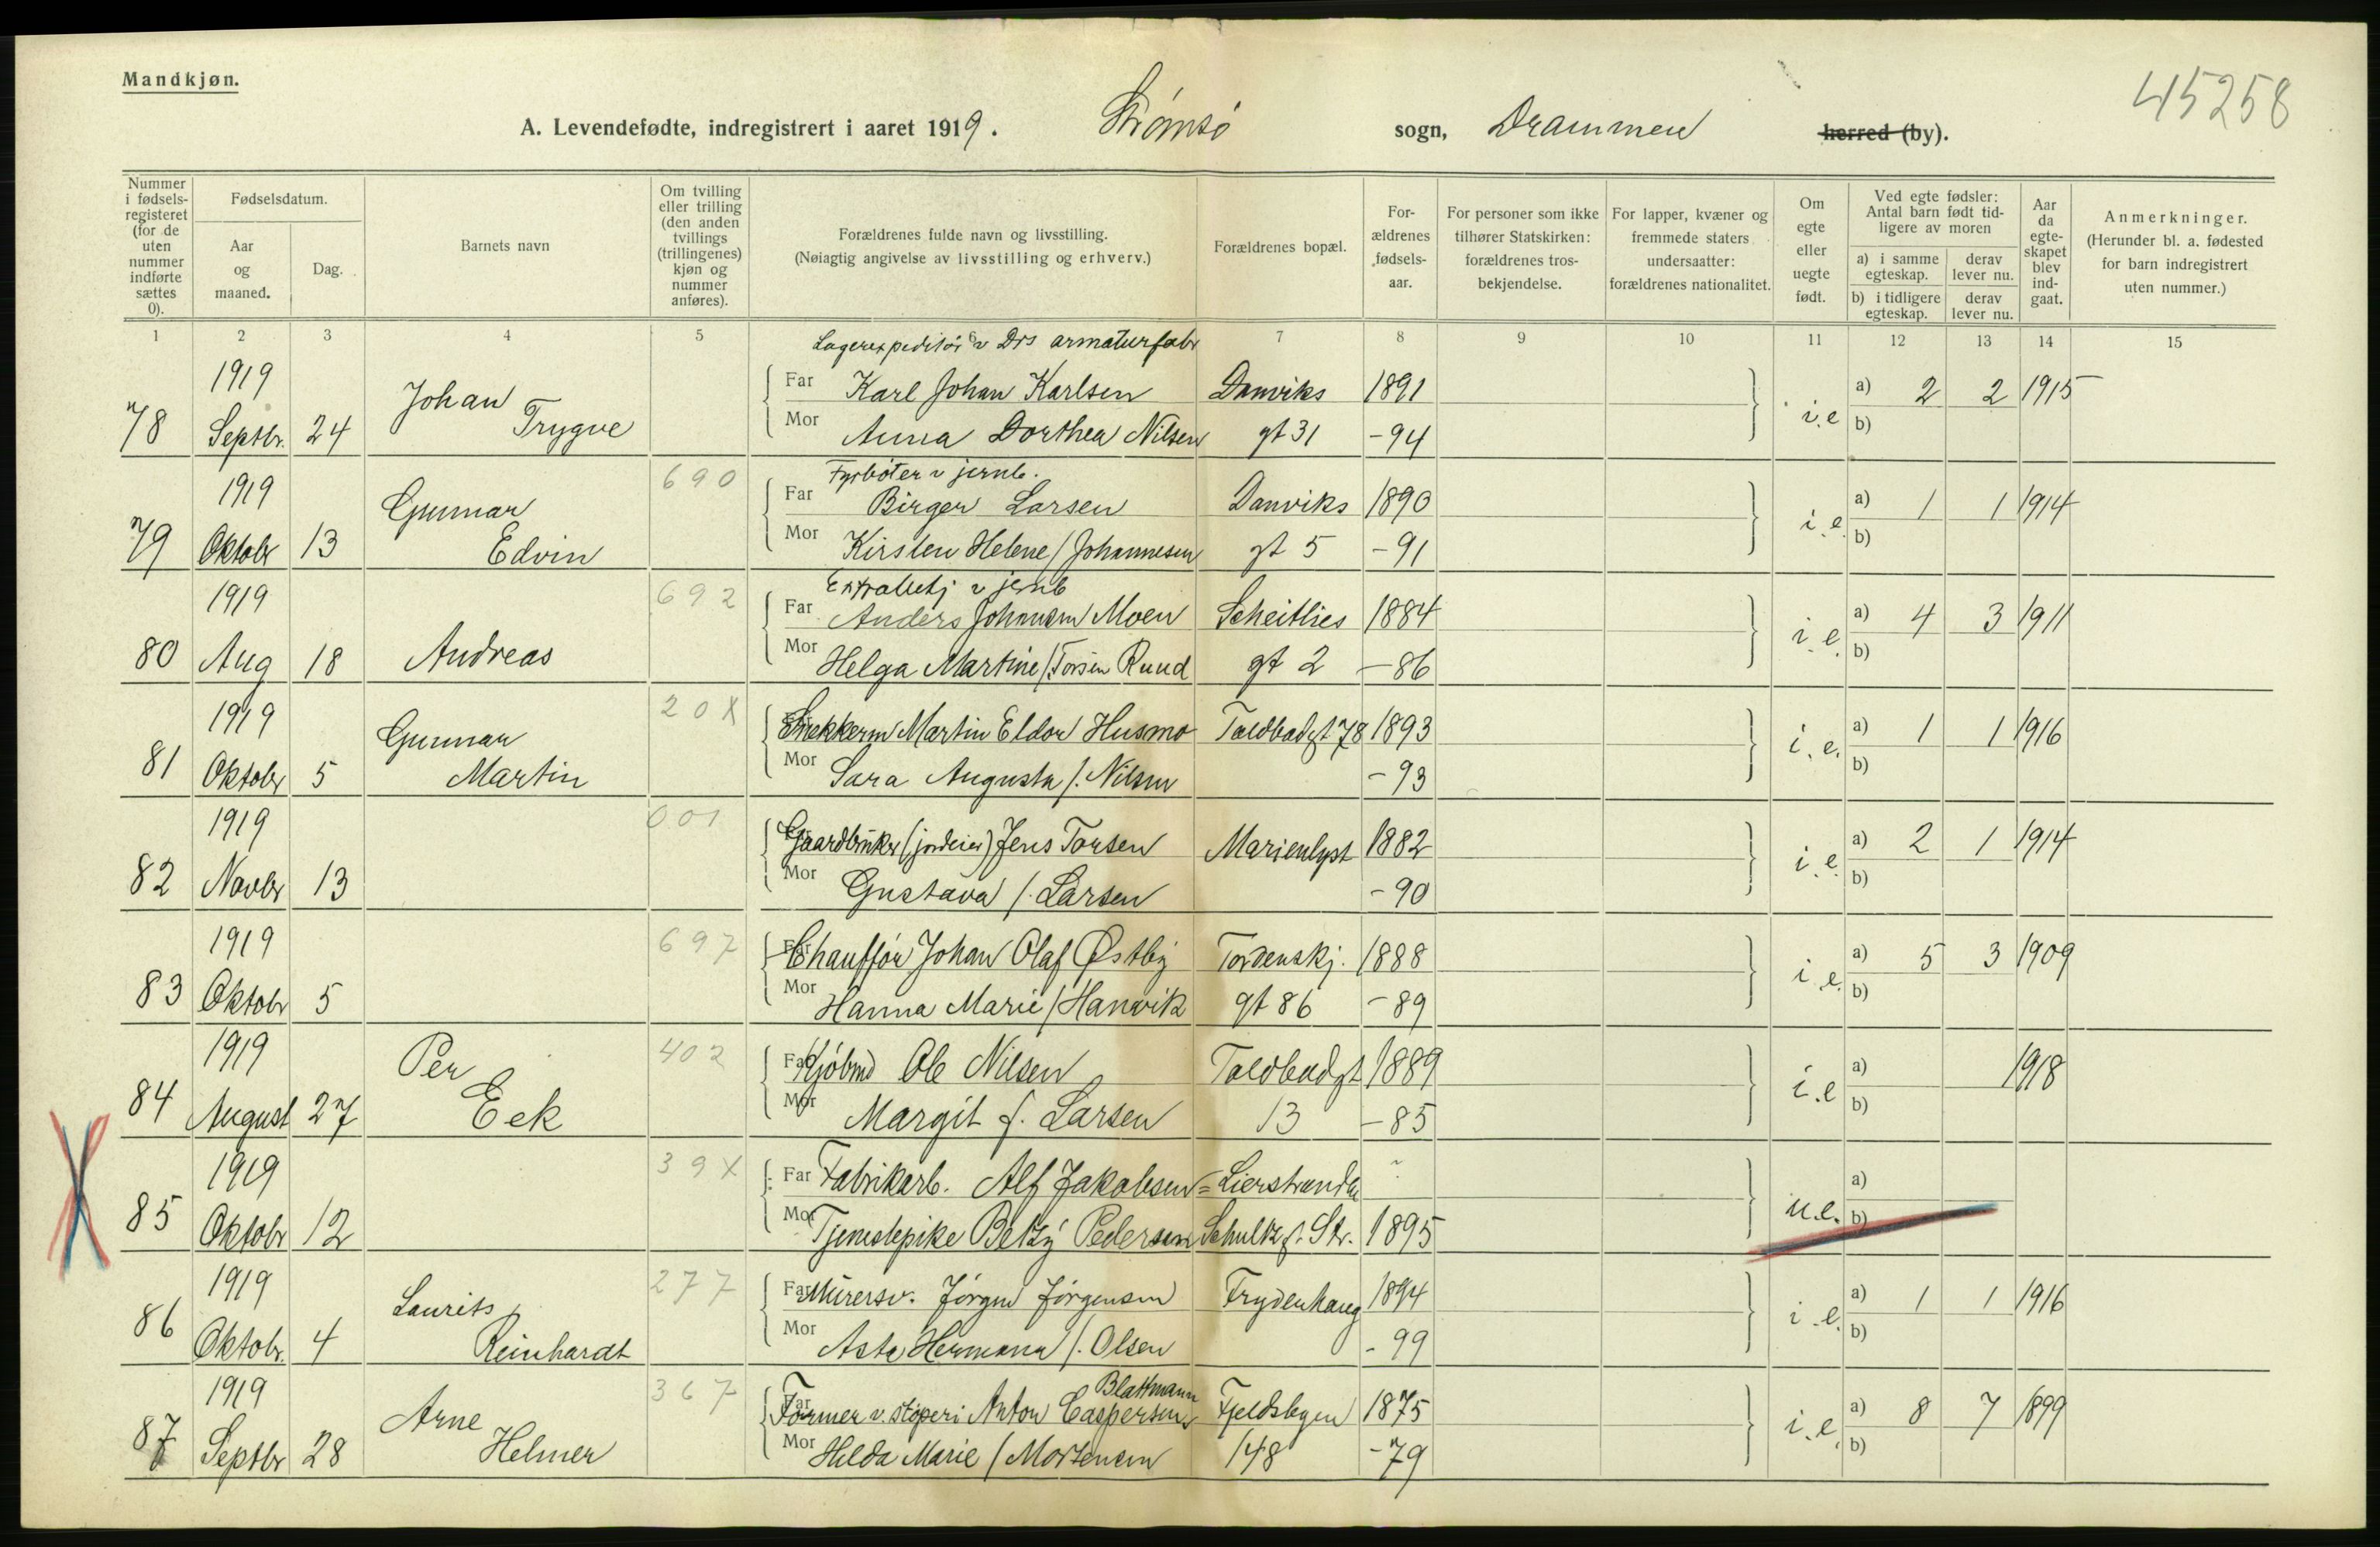 Mandkjøn.
45258
A. Levendefødte, indregistrert i aaret 1919. Strømsø sogn, Drammen herred (by).
Nummer i fødsels-registeret (for de uten nummer indførte sættes 0).
Fødselsdatum.
Aar og maaned.
Dag.
Barnets navn
Om tvilling eller trilling (den anden tvillings (trillingenes) kjøn og nummer anføres).
Forældrenes fulde navn og livsstilling.
(Nøiagtig angivelse av livsstilling og erhverv.)
Forældrenes bopæl.
For-ældrenes fødsels-aar.
For personer som ikke tilhører Statskirken: forældrenes tros-bekjendelse.
For lapper, kvæner og fremmede staters undersaatter: forældrenes nationalitet.
Om egte eller uegte født.
Ved egte fødsler: Antal barn født tid-ligere av moren
a) i samme egteskap.
derav lever nu.
b) i tidligere egteskap.
derav lever nu.
Aar da egte-skapet blev ind-gaat.
Anmerkninger.
(Herunder bl. a. fødested for barn indregistrert uten nummer.)
1 2 3 4 5 7 8 9 10 11 12 13 14 15
Lagerexpeditør v Drs armaturfabr
1919 Johan Far Karl Johan Karlsen Danviks 1891 a) 2 2 1915
78 Septbr. 24 Trygve Mor Anna Dorthea Nilsen gt 31 -94 i.e b)
690 Fyrbøter v jernb.
1919 Gunnar Far Birger Larsen Danviks 1890 a) 1 1 1914
79 Oktobr 13 Edvin Mor Kirsten Helene / Johannesen gt 5 -91 i.e. b)
692 Extrabetj v jernb
1919 Far Anders Johansen Moen Scheitlies 1884 a) 4 3 1911
80 Aug 18 Andreas Mor Helga Martine /. Torsen Ruud gt 2 -86 i.e. b)
20X
1919 Gunnar Snekkerm Martin Eldor Husmo Toldbodgt 78 1893 a) 1 1 1916
81 Oktobr 5 Martin Mor Sara Augusta /. Nilsen -93 i.e. b)
001
1919 Gaardbruker (jordeier) Jens Torsen Marienlyst 1882 a) 2 1 1914
82 Novbr 13 Mor Gustava /. Larsen -90 i.e. b)
697
1919 Chauffør Johan Olaf Østby Tordenskj. 1888 a) 5 3 1909
83 Oktobr 5 Mor Hanna Marie / Hanvik gt 86 -89 i.e. b)
402
1919 Per Far Kjøbmd Ole Nilsen Toldbodgt 1889 a) 1918
84 August 27 Eek Mor Margit f. Larsen 13 -85 i.e b)
39X
1919 Far Fabrikarb. Alf Jakobsen = Lierstranda a)
85 Oktobr 12 Mor Tjenestepike Betzy Pedersen Schultz gt. Str. 1895 u.e. b)
277
1919 Laurits Far Murersv. Jørgen Jørgensen Frydenhaug 1894 a) 1 1 1916
86 Oktobr. 4 Reinhardt Mor Asta Hermana /. Olsen -99 i.e. b)
367 Blattmann
1919 Arne Far Former v. støperi Anton Caspersen Fjeldsbyen 1875 a) 8 7 1899
87 Septbr 28 Helmer Mor Hilda Marie / Mortensen 148 -79 i.e. b)